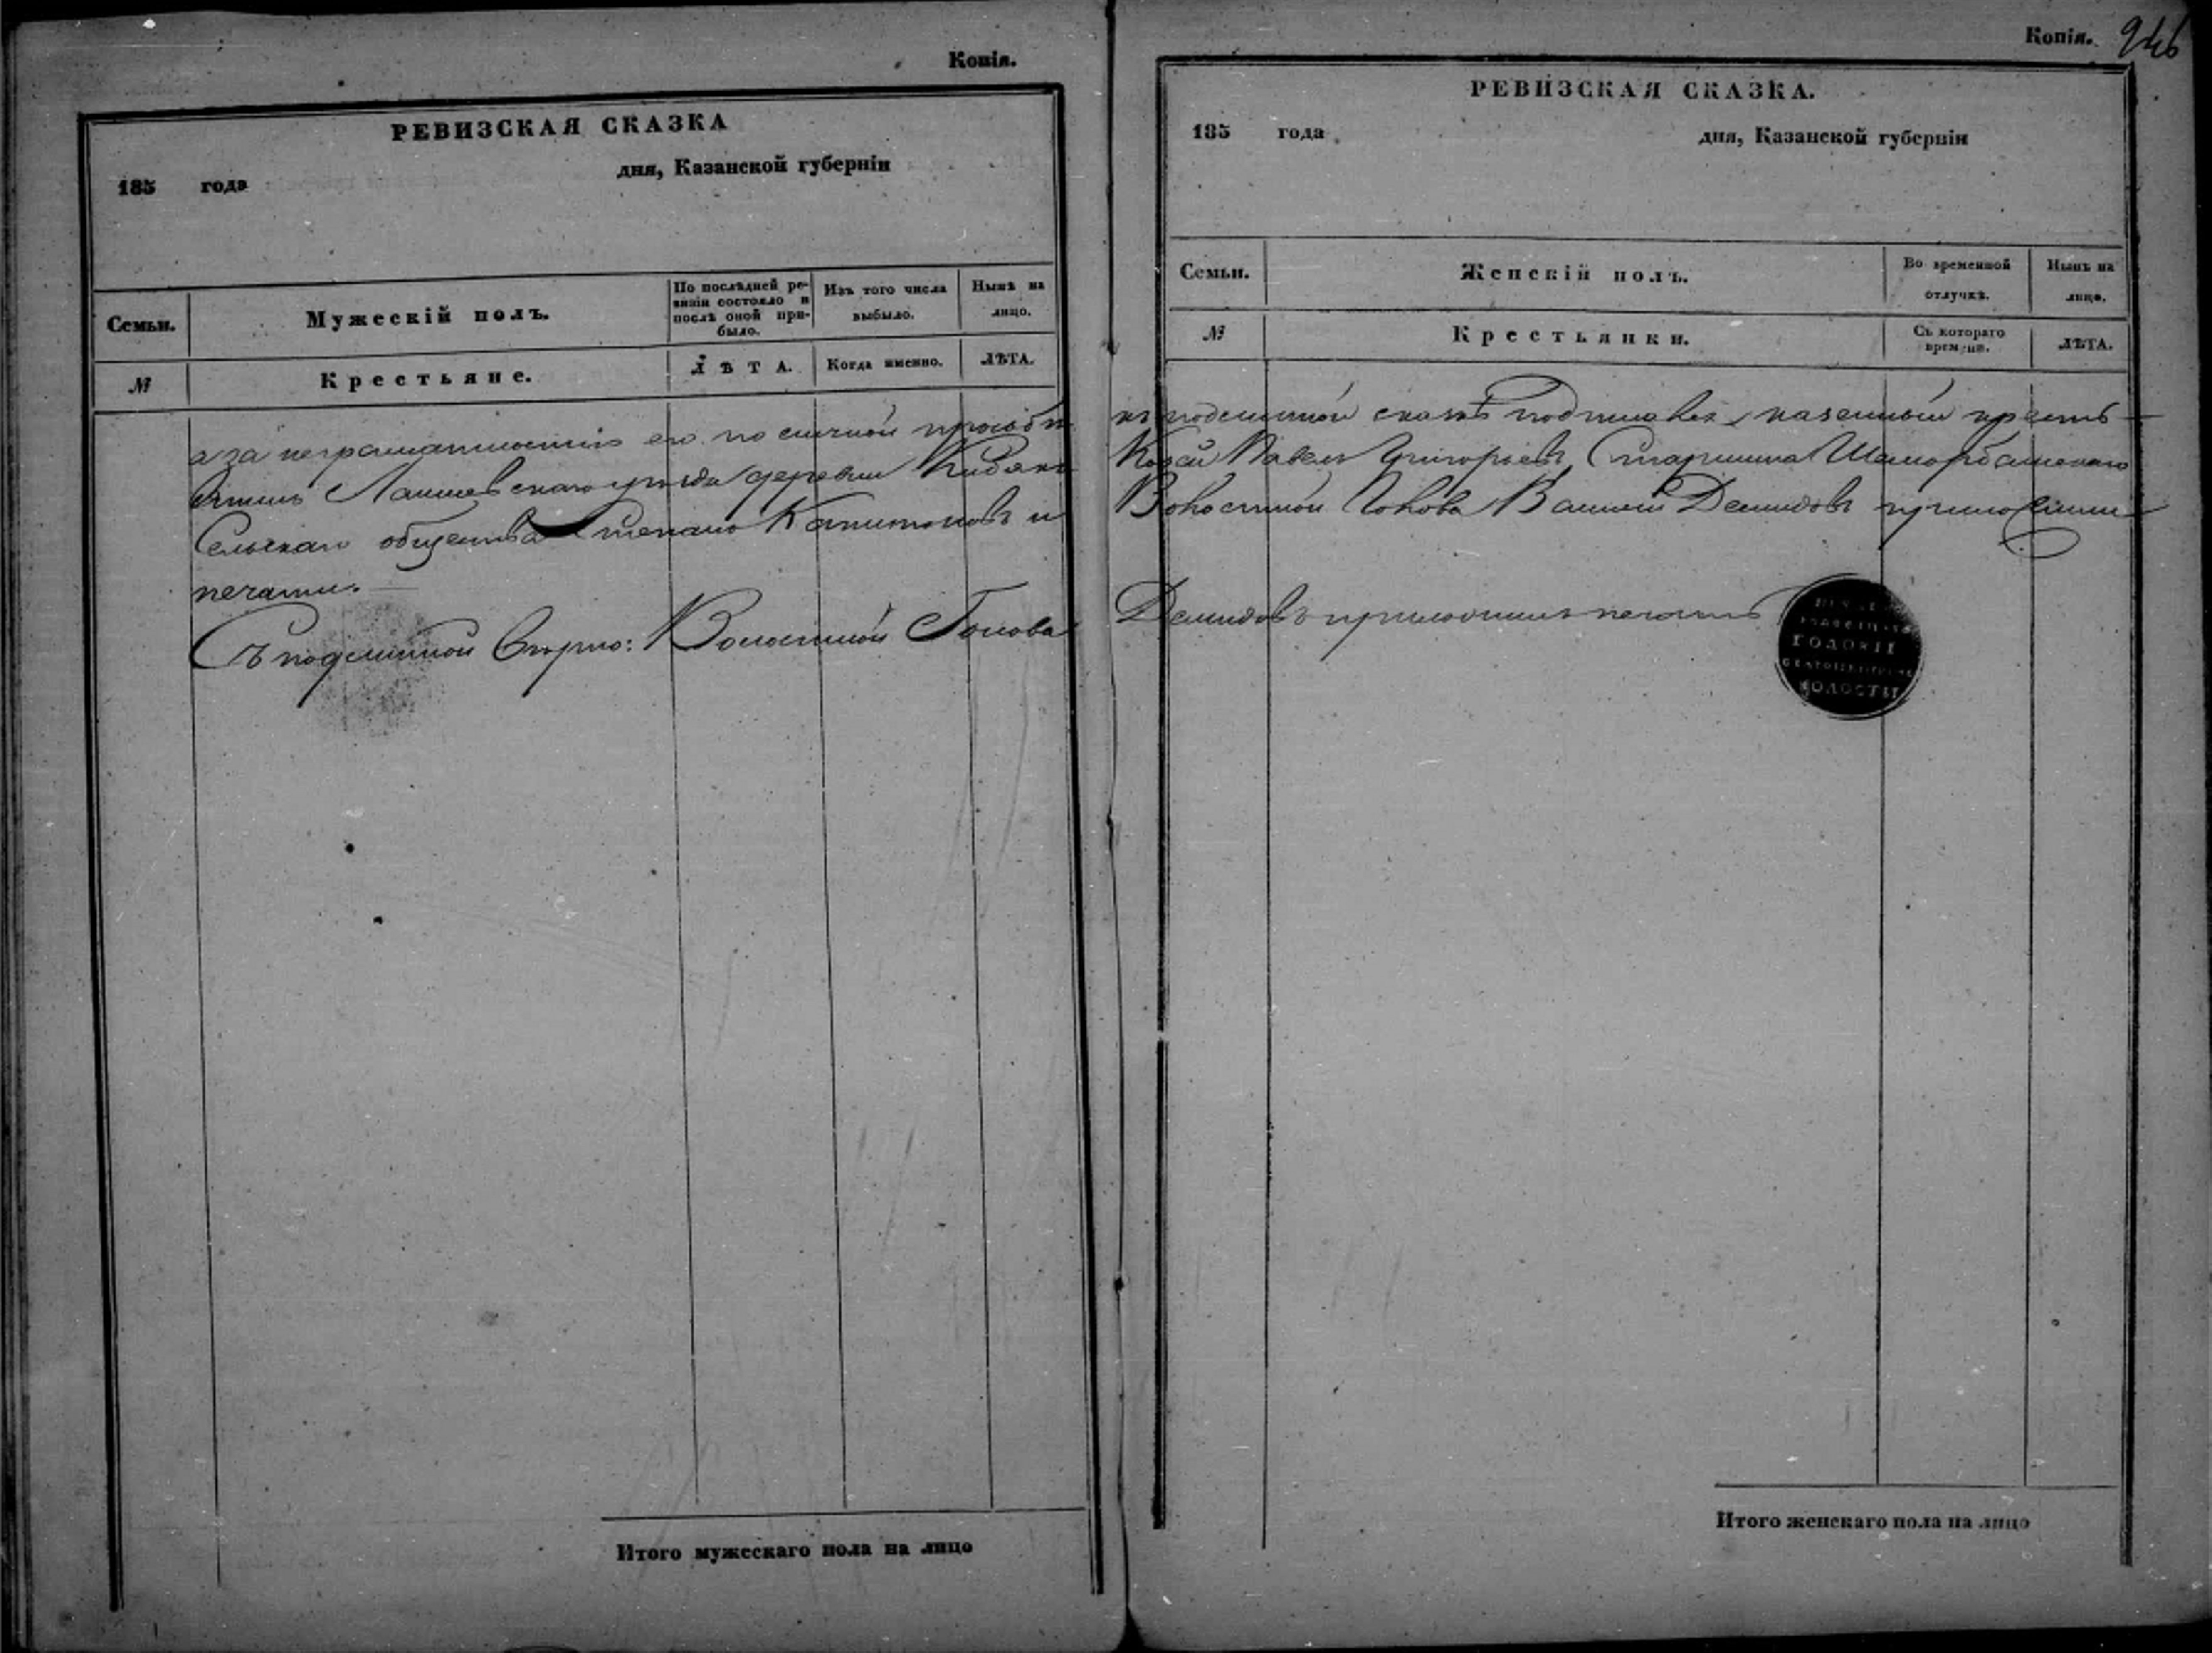 Копія.
РЕВИЗСКАЯ СКАЗКА
185 года дня, Казанской губерніи
Семьи.
Мужескій полъ.
По послѣдней ре-
визіи состояло и
послѣ оной при-
было.
Изъ того числа
выбыло.
Нынѣ на
лицо.
№
Крестьяне.
ЛѢТА.
Когда именно.
ЛѢТА.
а за неграмотностію его по личной прозьбѣ
Лаишевскаго уѣзда деревни
Сельскаго общества Степанъ Капитоновъ и
печати.
Съ подлинной вѣрно: Волостной Голова
Итого мужескаго пола на лицо
Копія. 246
РЕВИЗСКАЯ СКАЗКА.
185 года дня, Казанской губерніи
Семьи.
Женскій полъ.
Во временной
отлучкѣ.
Нынѣ на
лицо.
№
Крестьянки.
Съ котораго
времени.
ЛѢТА.
къ подлинной сказкѣ подписался казенный кресть
Павелъ Григорьевъ, Старшина
Волостной Голова Демидовъ приложили
Демидовъ приложилъ печать
ВОЛОСТИ
Итого женскаго пола на лицо